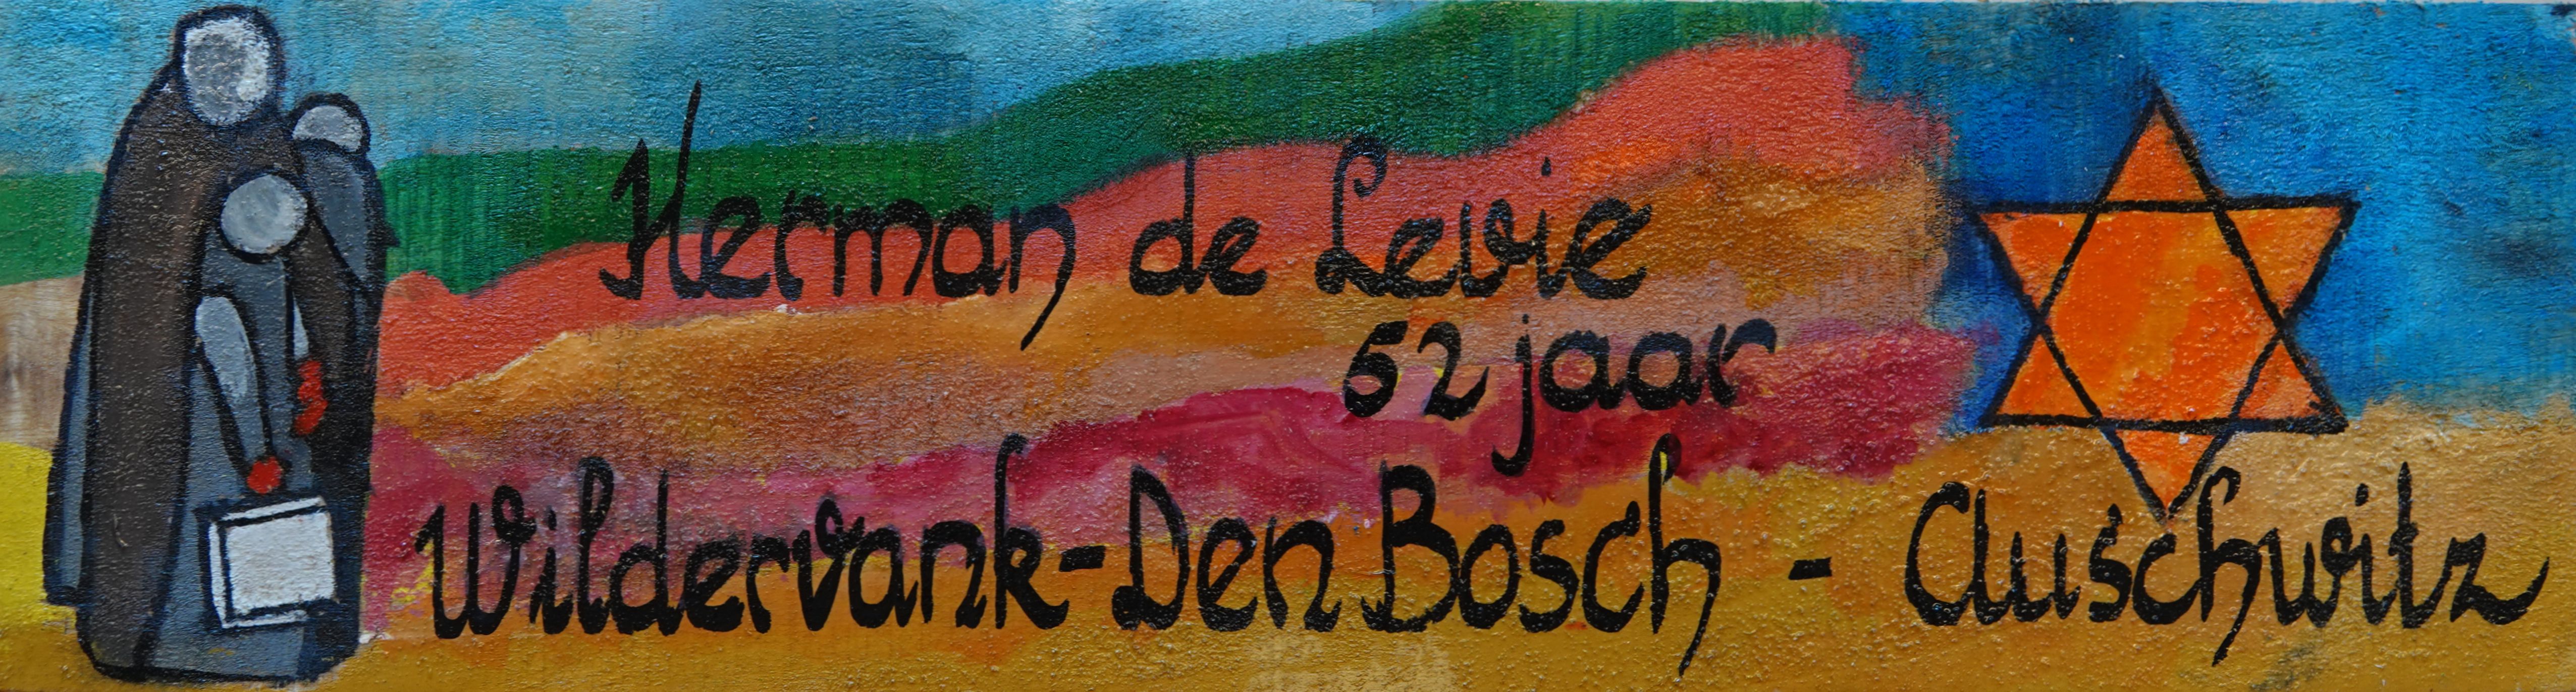 Herman de Levie
52 jaar
Wildervank-Den Bosch - Auschwitz